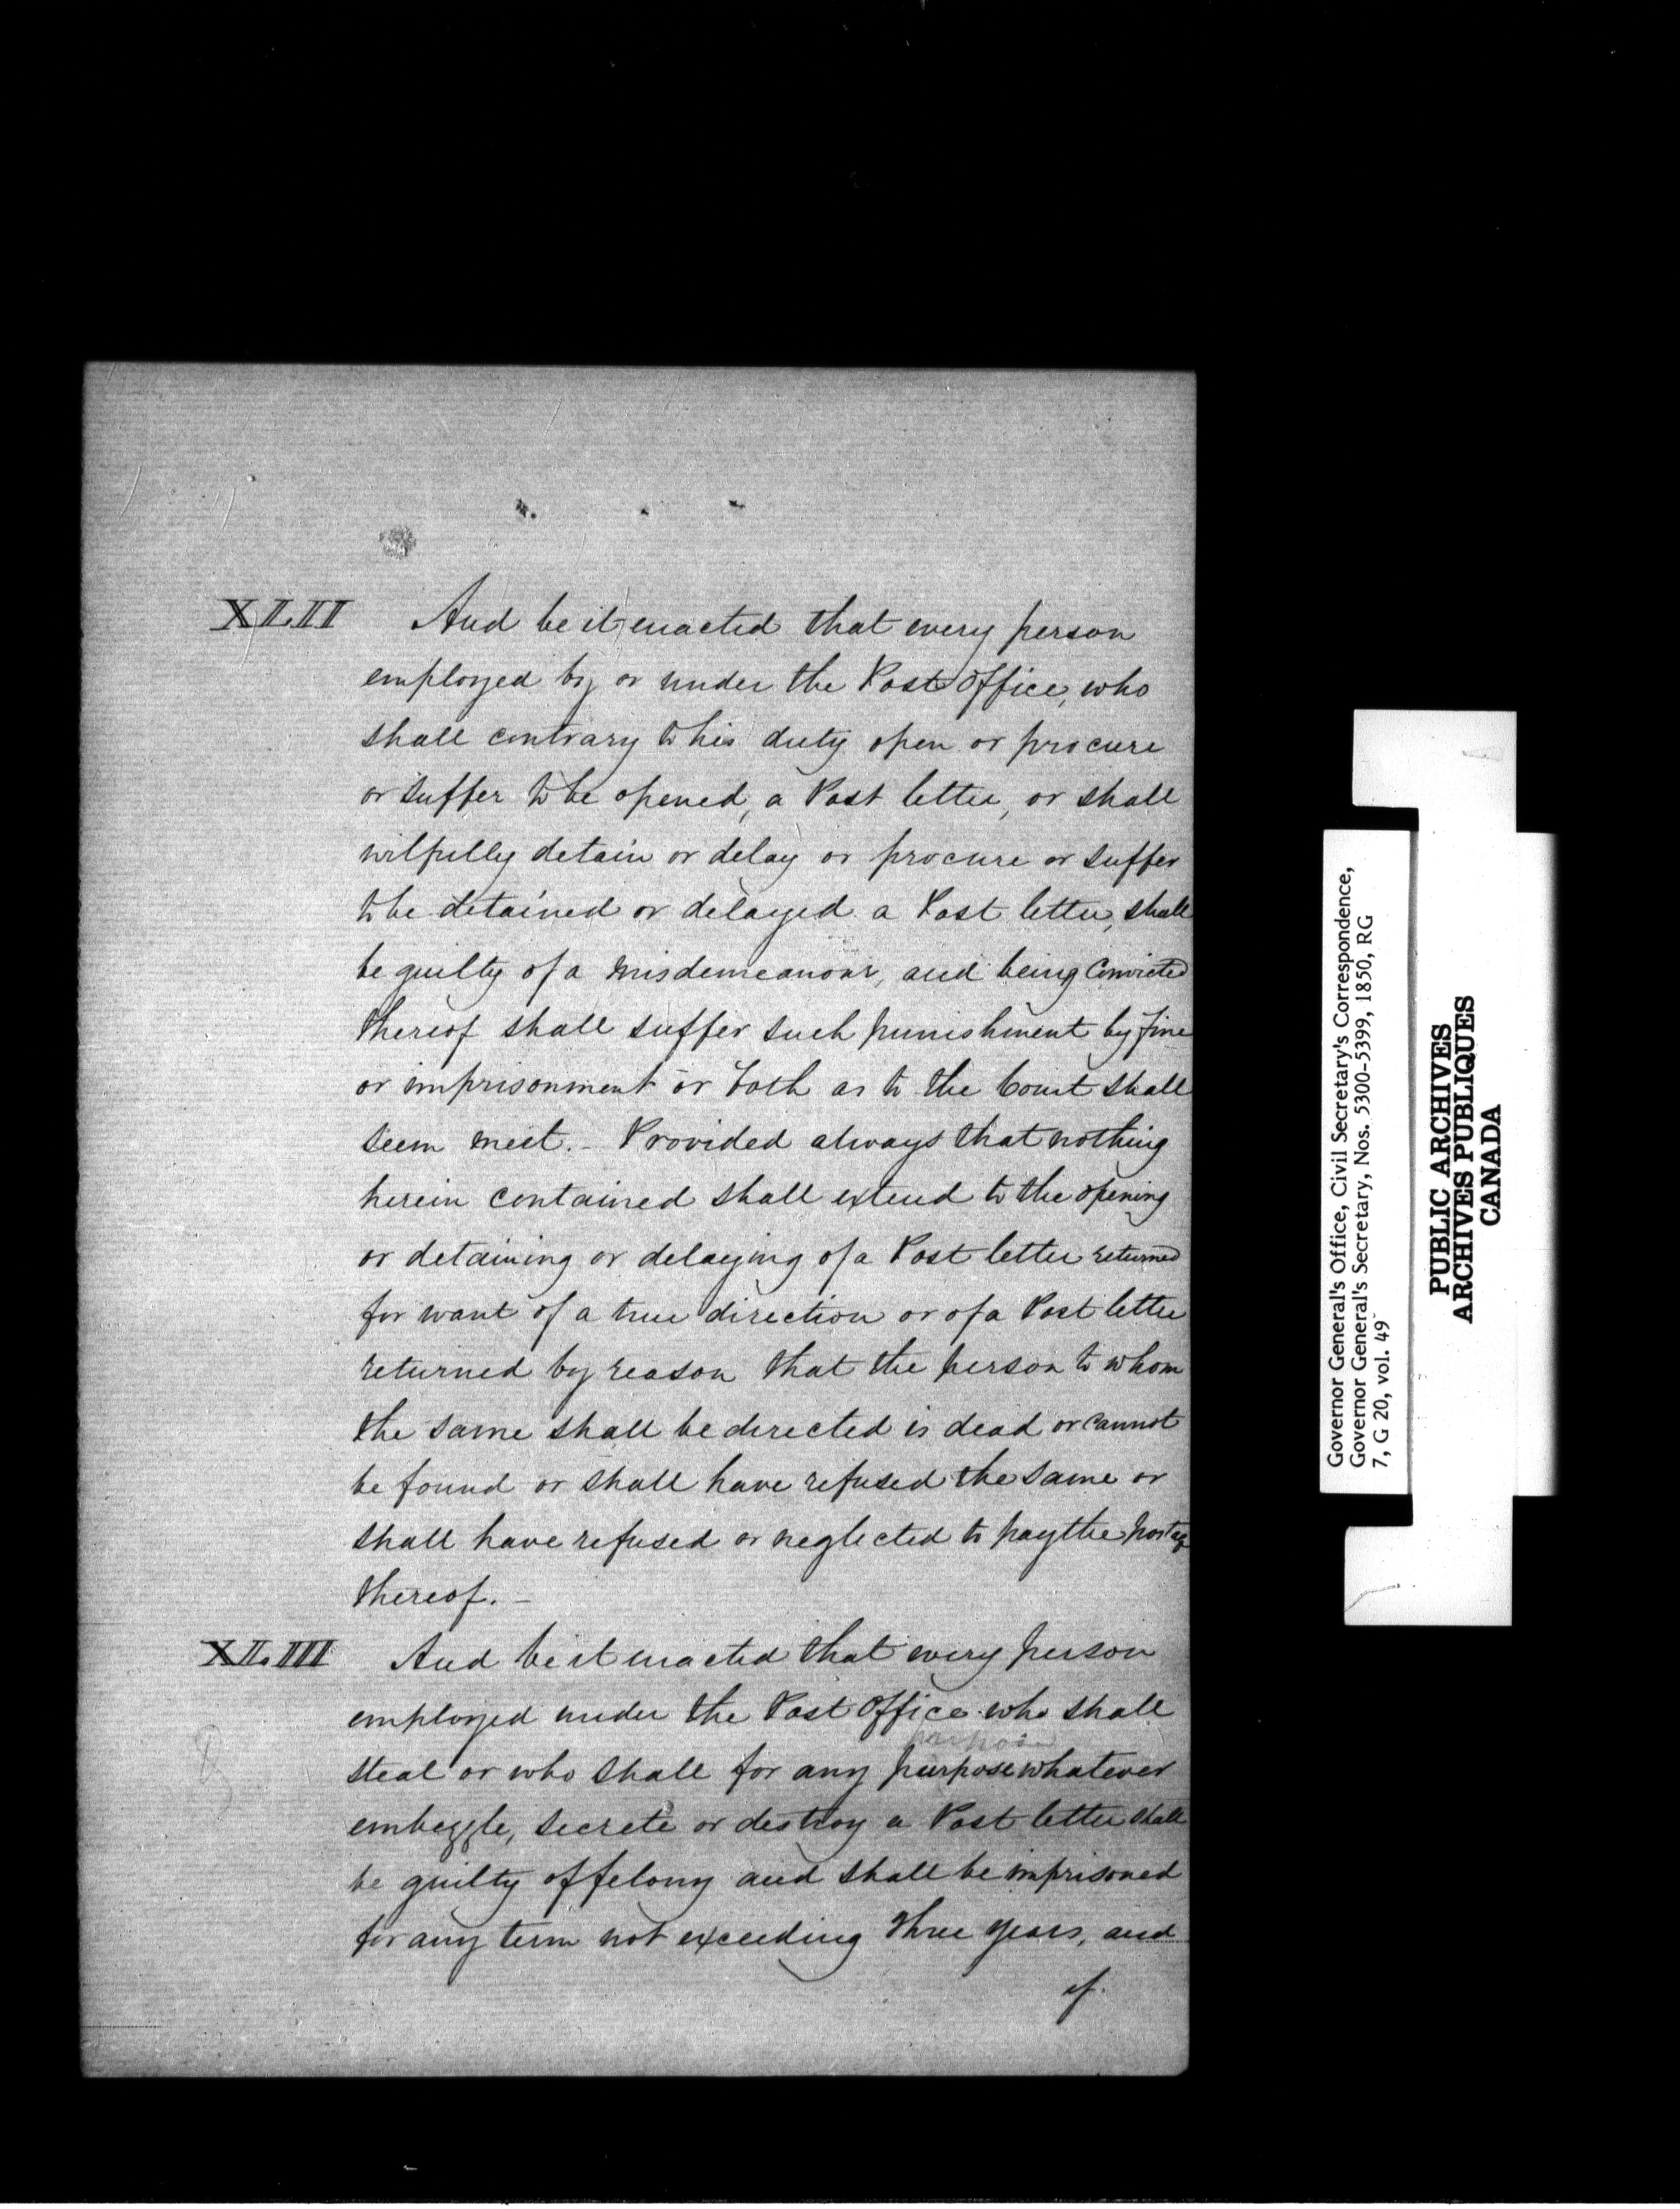 XLII And be it enacted that every person
employed by or under the Post Office, who
shall contrary to his duty open or procure
or suffer to be opened, a Post letter, or shall
wilfully detain or delay or procure or suffer
to be detained or delayed a Post letter, shall
be guilty of a Misdemeanour, and being Convicted
thereof shall suffer such punishment by fine
or imprisonment or both as to the Court shall
seem meet. - Provided always that nothing
herein contained shall extend to the opening
or detaining or delaying of a Post letter returned
for want of a true direction or of a Post letter
returned by reason that the person to whom
the same shall be directed is dead or cannot
be found or shall have refused the same or
shall have refused or neglected to pay the postage
thereof. -
XLIII And be it enacted that every person
employed under the Post Office who shall
purpose
steal or who shall for any purpose whatever
embezzle, secrete or destroy a Post letter shall
be guilty of felony and shall be imprisoned
for any term not exceeding three years, and
if.
Governor General's Office, Civil Secretary's Correspondence,
Governor General's Secretary, Nos. 5300-5399, 1850, RG
7, G 20, vol. 49
PUBLIC ARCHIVES
ARCHIVES PUBLIQUES
CANADA